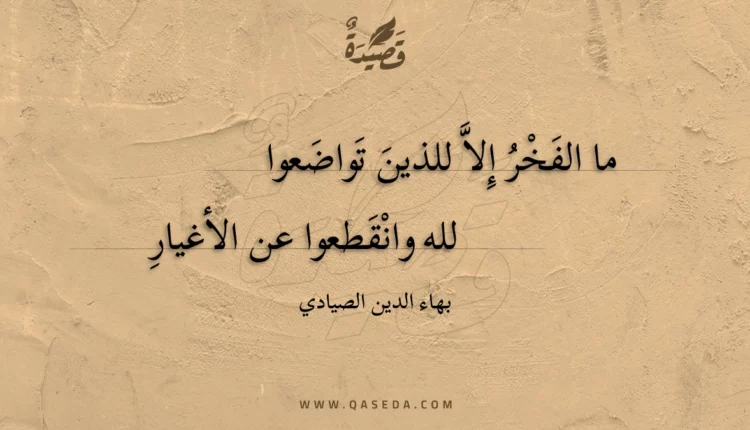 قَصِيدَةٌ
ما الفَخْرُ إِلاَّ للذينَ تَواضَعوا
لله وانْقَطعوا عن الأغيارِ
بهاء الدين الصيادي
WWW.QASEDA.COM